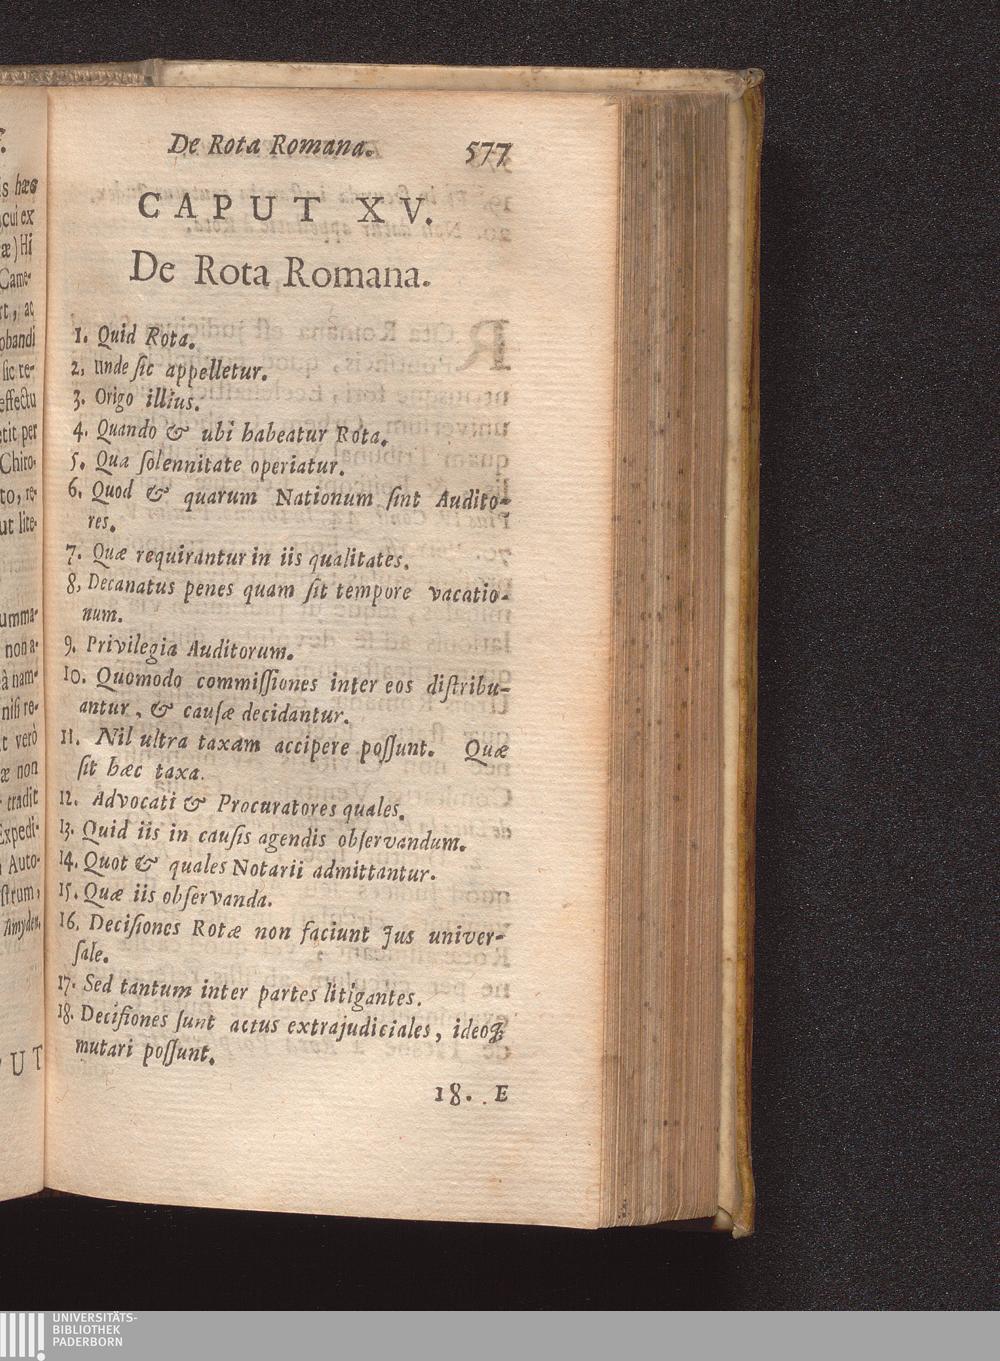 De Rota Romana. 577
CAPUT XV.
De Rota Romana.
1. Quid Rota.
2, unde ſic appelletur.
3. Origo illius.
4. Quando & ubi habeatur Rota.
5. Qua ſolennitate operiatur.
6. Quod & quarum Nationum ſint Audito-
res.
7. Quæ requirantur in iis qualitates.
8, Decanatus penes quam ſit tempore vacatio-
num.
9. Privilegia Auditorum.
10. Quomodo commiſſiones inter eos diſtribu-
antur, & cauſæ decidantur.
11. Nil ultra taxam accipere poſſunt. Quæ
ſit hæc taxa.
12. Advocati & Procuratores quales.
13. Quid iis in cauſis agendis obſervandum.
14. Quot & quales Notarii admittantur.
15. Quæ iis obſervanda.
16. Deciſiones Rotæ non faciunt Jus univer-
ſale.
17. Sed tantum inter partes litigantes.
18. Deciſiones ſunt actus extrajudiciales, ideoq;
mutari poſſunt.
18. E
UNIVERSITÄTS-
BIBLIOTHEK
PADERBORN